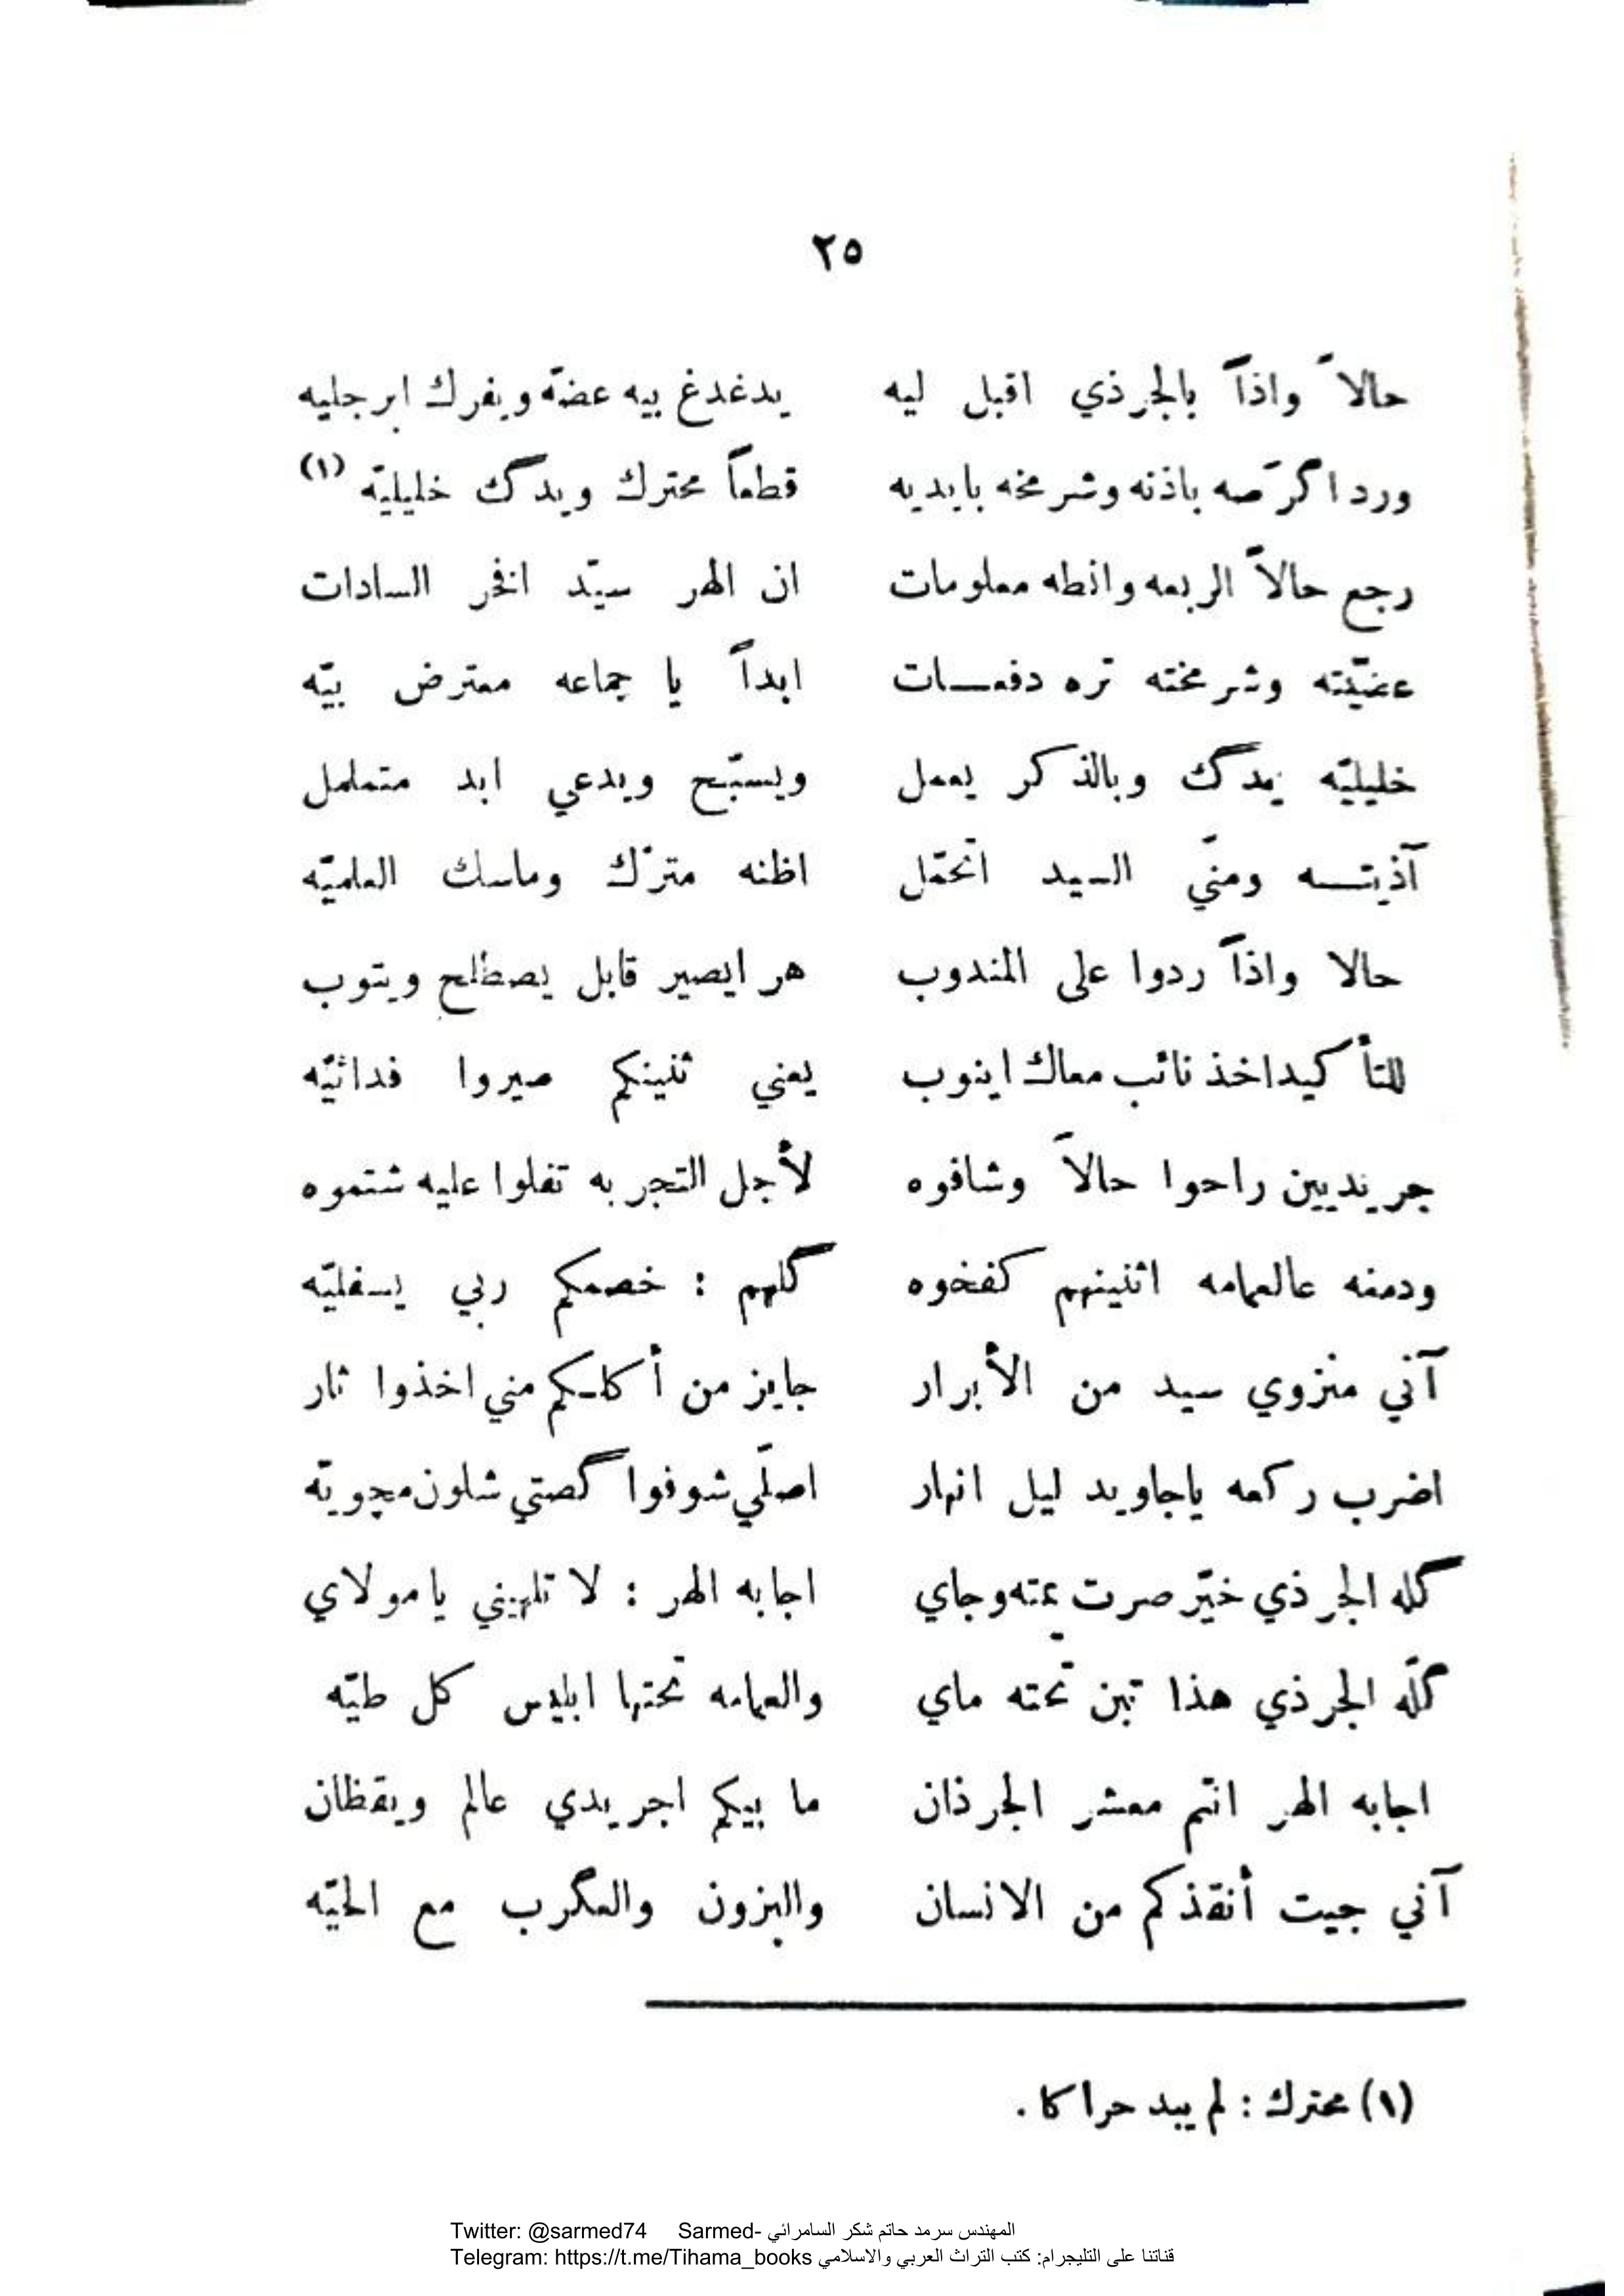 ٢٥
حالاً واذاً بالجرذي اقبل ليه يدغدغ بيه عضّه ويفرك ابرجليه
ورد اگرّصه باذنه وشرمخه بايديه قطعاً محترك ويدگ خليليّه (١)
رجع حالاً الربعه وانطه معلومات ان الهر سيّد افخر السادات
عضّيته وشرمخته تره دفعـات ابداً يا جماعه معترض بيّه
خليليّه يدگ وبالذكر يعمل ويسبّح ويدعي ابد متململ
آذيتـه ومنّي السيد اتحمّل اظنه مترّك وماسك العلميّه
حالا واذاً ردوا على المندوب هر ايصير قابل يصطلح ويتوب
للتأكيد اخذ نائب معاك اينوب يعني ثنينكم صيروا فدائيّه
جريديين راحوا حالاً وشافوه لأجل التجربه تفلوا عليه شتموه
ودمغه عالعمامه اثنينهم كفخوه گلهم : خصمكم ربي يسفليّه
آني منزوي سيد من الأبرار جايز من أكلـكم مني اخذوا ثار
اضرب ركعه ياجاويد ليل انهار اصلّي شوفوا گصتي شلون مچويّه
گله الجرذي خيّر صرت عمته وجاي اجابه الهر : لا تلهيني يا مولاي
گلّه الجرذي هذا تبن تحته ماي والعمامه تحتها ابليس كل طيّه
اجابه الهر انتم معشر الجرذان ما بيكم اجريدي عالم ويقظان
آني جيت أنقذكم من الانسان والبزون والعگرب مع الحيّه
(١) محترك : لم يبد حراكا .
Twitter: @sarmed74 Sarmed- المهندس سرمد حاتم شكر السامرائي
Telegram: https://t.me/Tihama_books قناتنا على التليجرام: كتب التراث العربي والاسلامي